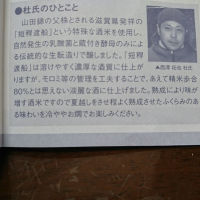 ●杜氏のひとこと
山田錦の父株とされる滋賀県発祥の
「短稈渡船」という特殊な酒米を使用し、
自然発生の乳酸菌と蔵付き酵母のみによ
る伝統的な生酛造りで醸しました。「短稈
渡船」は溶けやすく濃厚な酒質に仕上が
りますが、モロミ等の管理を工夫することで、あえて精米歩合
80%とは思えない淡麗な酒に仕上げました。熟成により味が
増す酒米ですので夏越しをさせ程よく熟成させたふくらみのあ
る味わいを冷ややお燗でお楽しみください。
杜氏